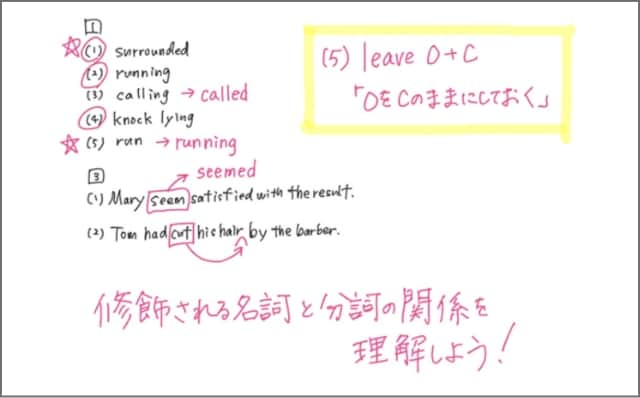 1
(1) surrounded
(2) running
(3) calling → called
(4) knock lying
(5) run → running
3
seemed
(1) Mary seem satisfied with the result.
(2) Tom had cut his hair by the barber.
(5) leave O+C
「OをCのままにしておく」
修飾される名詞と分詞の関係を
理解しよう!